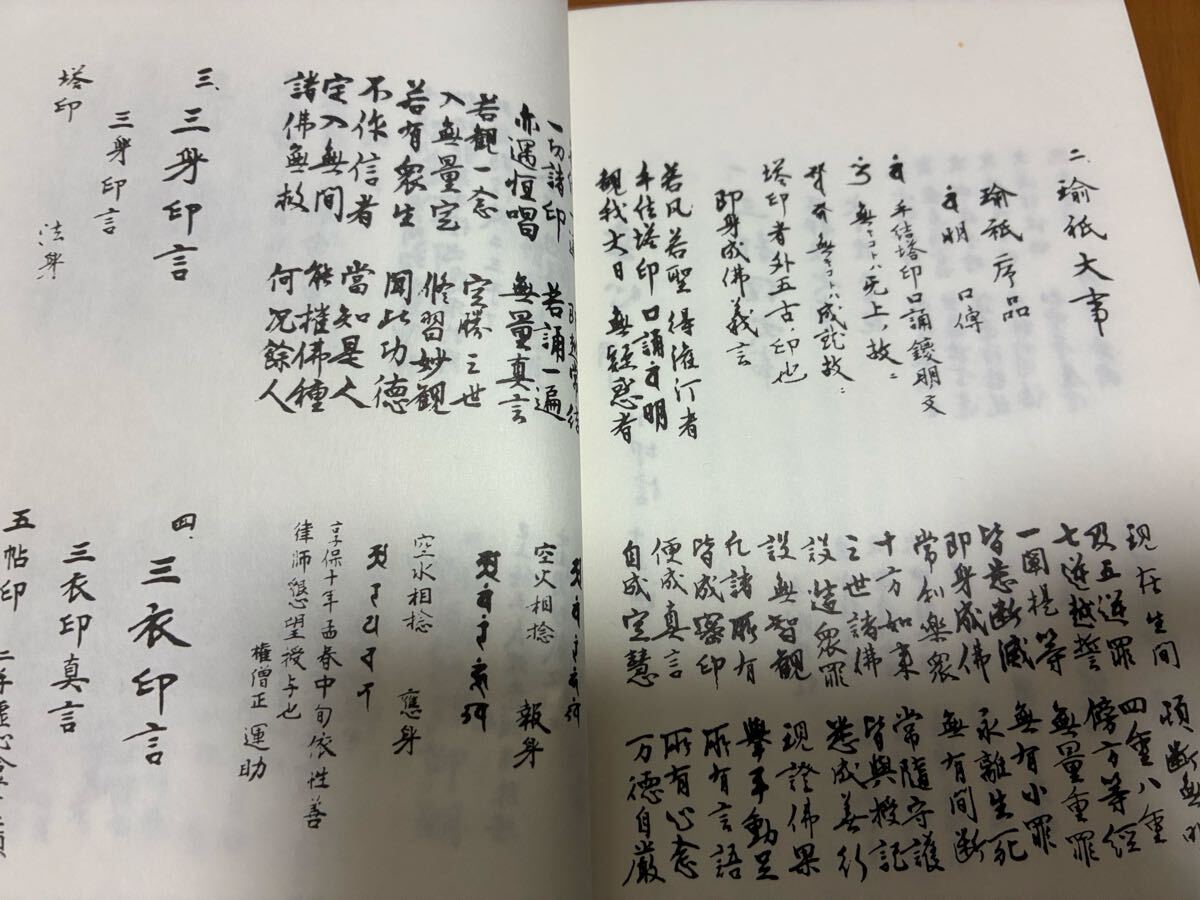 二、瑜祇大事
瑜祇序品
明 口傳
手结塔印口誦鑁明文
無上ノ故ニ
成就故ニ
塔印者外五古ノ印也
即身成佛義言
若凡若聖 得灌汀者
手结塔印 口誦 明
観我大日 無疑惑者
現在生間 頓断無明
及五逆罪 四重八重
七逆越誓 傍方等経
一闡提等 無量重罪
皆悉断滅 無有小罪
即身成佛 永離生死
常利樂衆 無有間断
十方如来 常随守護
三世諸佛 皆與授記
設造衆罪 悉成善行
設無智観 現證佛果
凡諸所有 擧手動足
皆成密印 所有言語
便成真言 所有心念
自成定慧 万德自厳
一切諸印 若誦一遍
亦遇恒唱 無量真言
若観一念 定勝三世
入無量定 修習妙観
若有衆生 聞此功德
不作信者 當知是人
定入無間 能摧佛種
諸佛無救 何况餘人
三、三身印言
三身印言
塔印 法身
空火相捻 報身
空水相捻 應身
享保十年孟春中旬依性善
律師懇望授与也
権僧正 運助
四、三衣印言
三衣印真言
五帖印